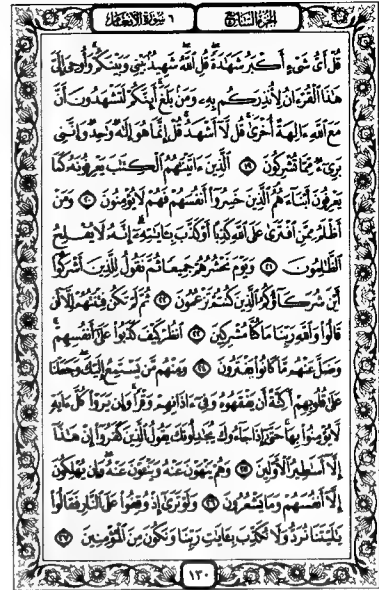 الجزء السابع
٦ سورة الأنعام
قُلْ أَىُّ شَىْءٍ أَكْبَرُ شَهَٰدَةً قُلِ ٱللَّهُ شَهِيدٌۢ بَيْنِى وَبَيْنَكُمْ وَأُوحِىَ إِلَىَّ
هَٰذَا ٱلْقُرْءَانُ لِأُنذِرَكُم بِهِۦ وَمَنۢ بَلَغَ أَئِنَّكُمْ لَتَشْهَدُونَ أَنَّ
مَعَ ٱللَّهِ ءَالِهَةً أُخْرَىٰ قُل لَّآ أَشْهَدُ قُلْ إِنَّمَا هُوَ إِلَٰهٌ وَٰحِدٌ وَإِنَّنِى
بَرِىٓءٌ مِّمَّا تُشْرِكُونَ ١٩ ٱلَّذِينَ ءَاتَيْنَٰهُمُ ٱلْكِتَٰبَ يَعْرِفُونَهُۥ كَمَا
يَعْرِفُونَ أَبْنَآءَهُمُ ٱلَّذِينَ خَسِرُوٓا۟ أَنفُسَهُمْ فَهُمْ لَا يُؤْمِنُونَ ٢٠ وَمَنْ
أَظْلَمُ مِمَّنِ ٱفْتَرَىٰ عَلَى ٱللَّهِ كَذِبًا أَوْ كَذَّبَ بِـَٔايَٰتِهِۦٓ إِنَّهُۥ لَا يُفْلِحُ
ٱلظَّٰلِمُونَ ٢١ وَيَوْمَ نَحْشُرُهُمْ جَمِيعًا ثُمَّ نَقُولُ لِلَّذِينَ أَشْرَكُوٓا۟
أَيْنَ شُرَكَآؤُكُمُ ٱلَّذِينَ كُنتُمْ تَزْعُمُونَ ٢٢ ثُمَّ لَمْ تَكُن فِتْنَتُهُمْ إِلَّآ أَن
قَالُوا۟ وَٱللَّهِ رَبِّنَا مَا كُنَّا مُشْرِكِينَ ٢٣ ٱنظُرْ كَيْفَ كَذَبُوا۟ عَلَىٰٓ أَنفُسِهِمْ
وَضَلَّ عَنْهُم مَّا كَانُوا۟ يَفْتَرُونَ ٢٤ وَمِنْهُم مَّن يَسْتَمِعُ إِلَيْكَ وَجَعَلْنَا
عَلَىٰ قُلُوبِهِمْ أَكِنَّةً أَن يَفْقَهُوهُ وَفِىٓ ءَاذَانِهِمْ وَقْرًا وَإِن يَرَوْا۟ كُلَّ ءَايَةٍ
لَّا يُؤْمِنُوا۟ بِهَا حَتَّىٰٓ إِذَا جَآءُوكَ يُجَٰدِلُونَكَ يَقُولُ ٱلَّذِينَ كَفَرُوٓا۟ إِنْ هَٰذَآ
إِلَّآ أَسَٰطِيرُ ٱلْأَوَّلِينَ ٢٥ وَهُمْ يَنْهَوْنَ عَنْهُ وَيَنْـَٔوْنَ عَنْهُ وَإِن يُهْلِكُونَ
إِلَّآ أَنفُسَهُمْ وَمَا يَشْعُرُونَ ٢٦ وَلَوْ تَرَىٰٓ إِذْ وُقِفُوا۟ عَلَى ٱلنَّارِ فَقَالُوا۟
يَٰلَيْتَنَا نُرَدُّ وَلَا نُكَذِّبَ بِـَٔايَٰتِ رَبِّنَا وَنَكُونَ مِنَ ٱلْمُؤْمِنِينَ ٢٧
١٣٠